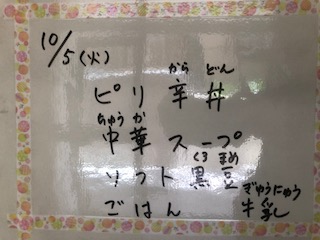 10/5(火)
ピリ辛丼
からどん
中華スープ
ちゅうか
ソフト黒豆
くろまめ
ごはん 牛乳
ぎゅうにゅう